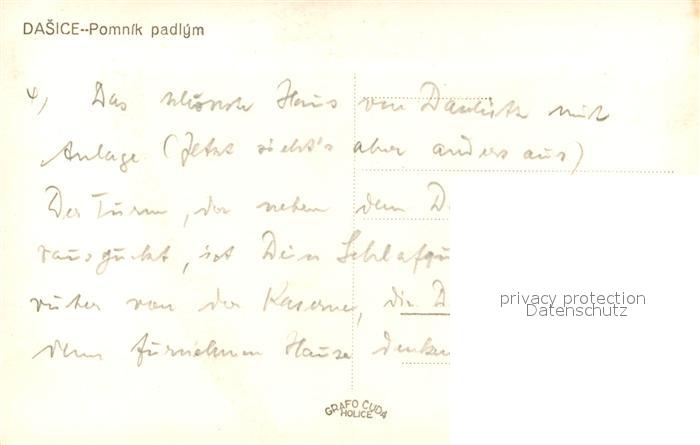 DAŠICE--Pomník padlým
4, Das schönste Haus von Daschitz mit
Anlage (Jetzt sieht's aber anders aus)
Der Turm, der neben dem D
rausguckt, ist Dein Schlafqu
von der Kaserne, die D
dem fürnehmen Hause denken
privacy protection
Datenschutz
GRAFO ČUDA
HOLICE